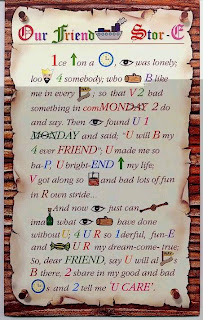 Our Friend Stor-E
1ce on a , was lonely;
loo 4 somebody, who B like
me in every , so that V 2 bad
something in comMONDAY 2 do
and say. Then found U 1
MONDAY and said; "U will B my
4 ever FRIEND"; U made me so
ba-P, U bright-END my life;
V got along so and bad lots of fun
in R own stride...
And now just can
into what have done
without U; 4 U R so 1derful, fun-E
and U R my dream-come-true;
So, dear FRIEND, say U will al s
B there, 2 share in my good and bad
s and 2 tell me 'U CARE'.